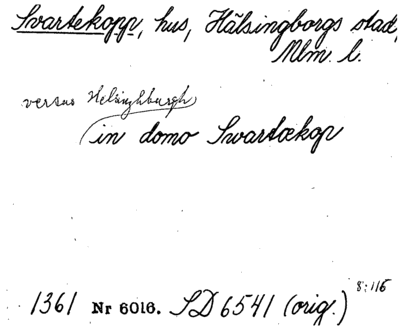 Svartekopp, hus, Hälsingborgs stad,
Mlm. l.
versus Helsinghburgh
(in domo Swartœkop
8:115
1361 Nr 6016. SD 6541 (orig.)